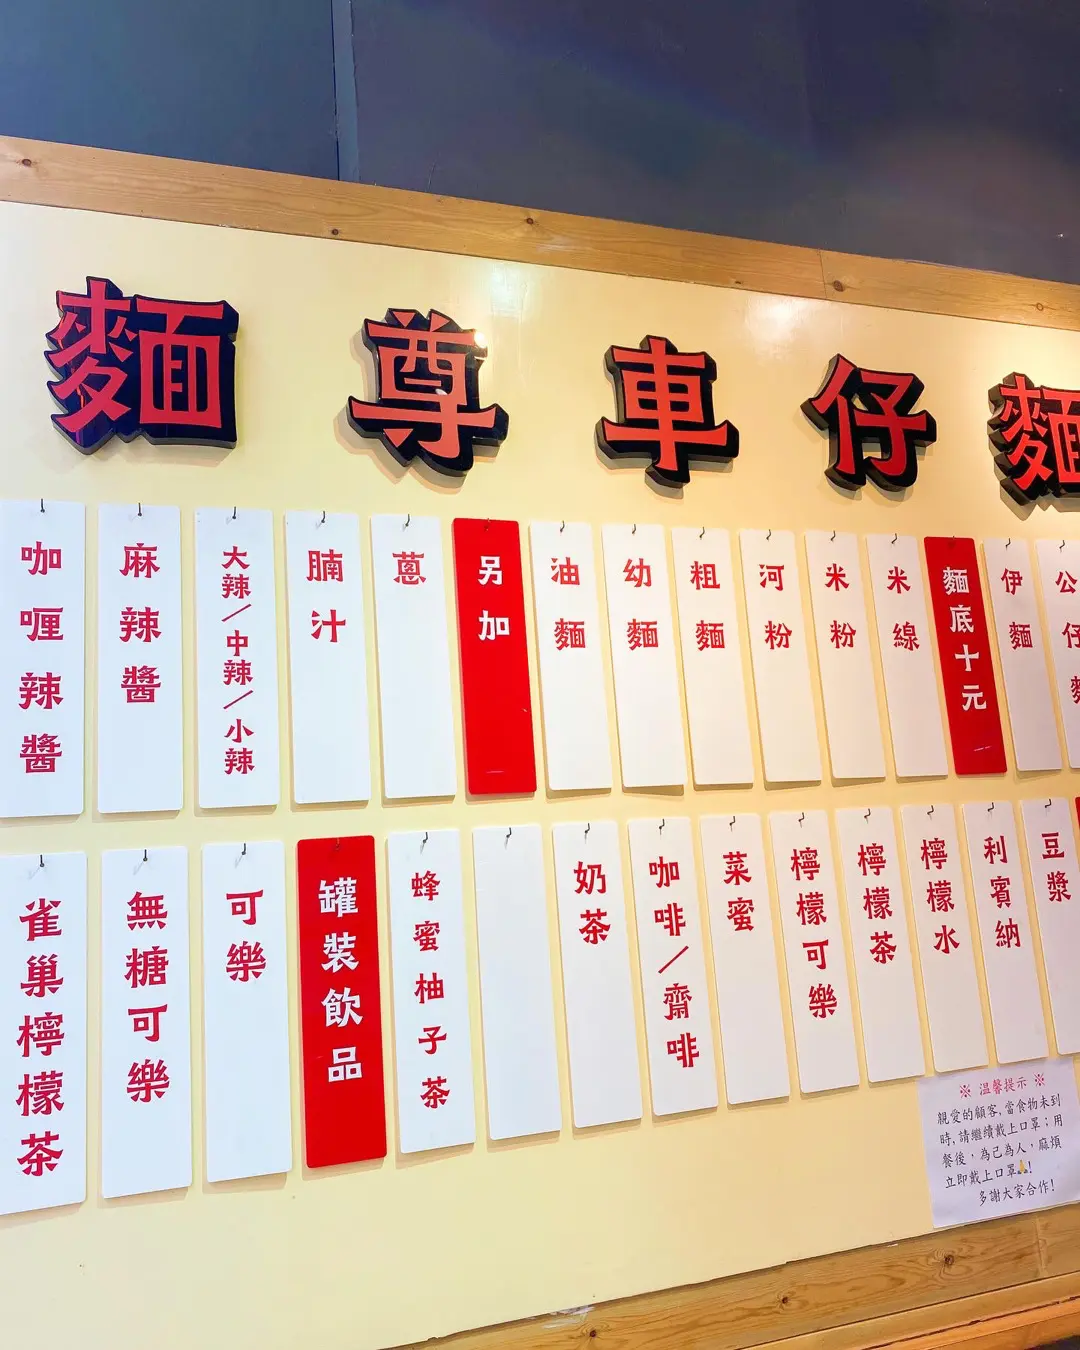 麵尊車仔麵
咖喱辣醬
麻辣醬
大辣/中辣/小辣
腩汁
蔥
另加
油麵
幼麵
粗麵
河粉
米粉
米線
麵底十元
伊麵
公仔麵
雀巢檸檬茶
無糖可樂
可樂
罐裝飲品
蜂蜜柚子茶
奶茶
咖啡/齋啡
菜蜜
檸檬可樂
檸檬茶
檸檬水
利賓納
豆漿
※ 溫馨提示 ※
親愛的顧客,當食物未到
時,請繼續戴上口罩;用
餐後,為己為人,麻煩
立即戴上口罩🙏!
多謝大家合作!